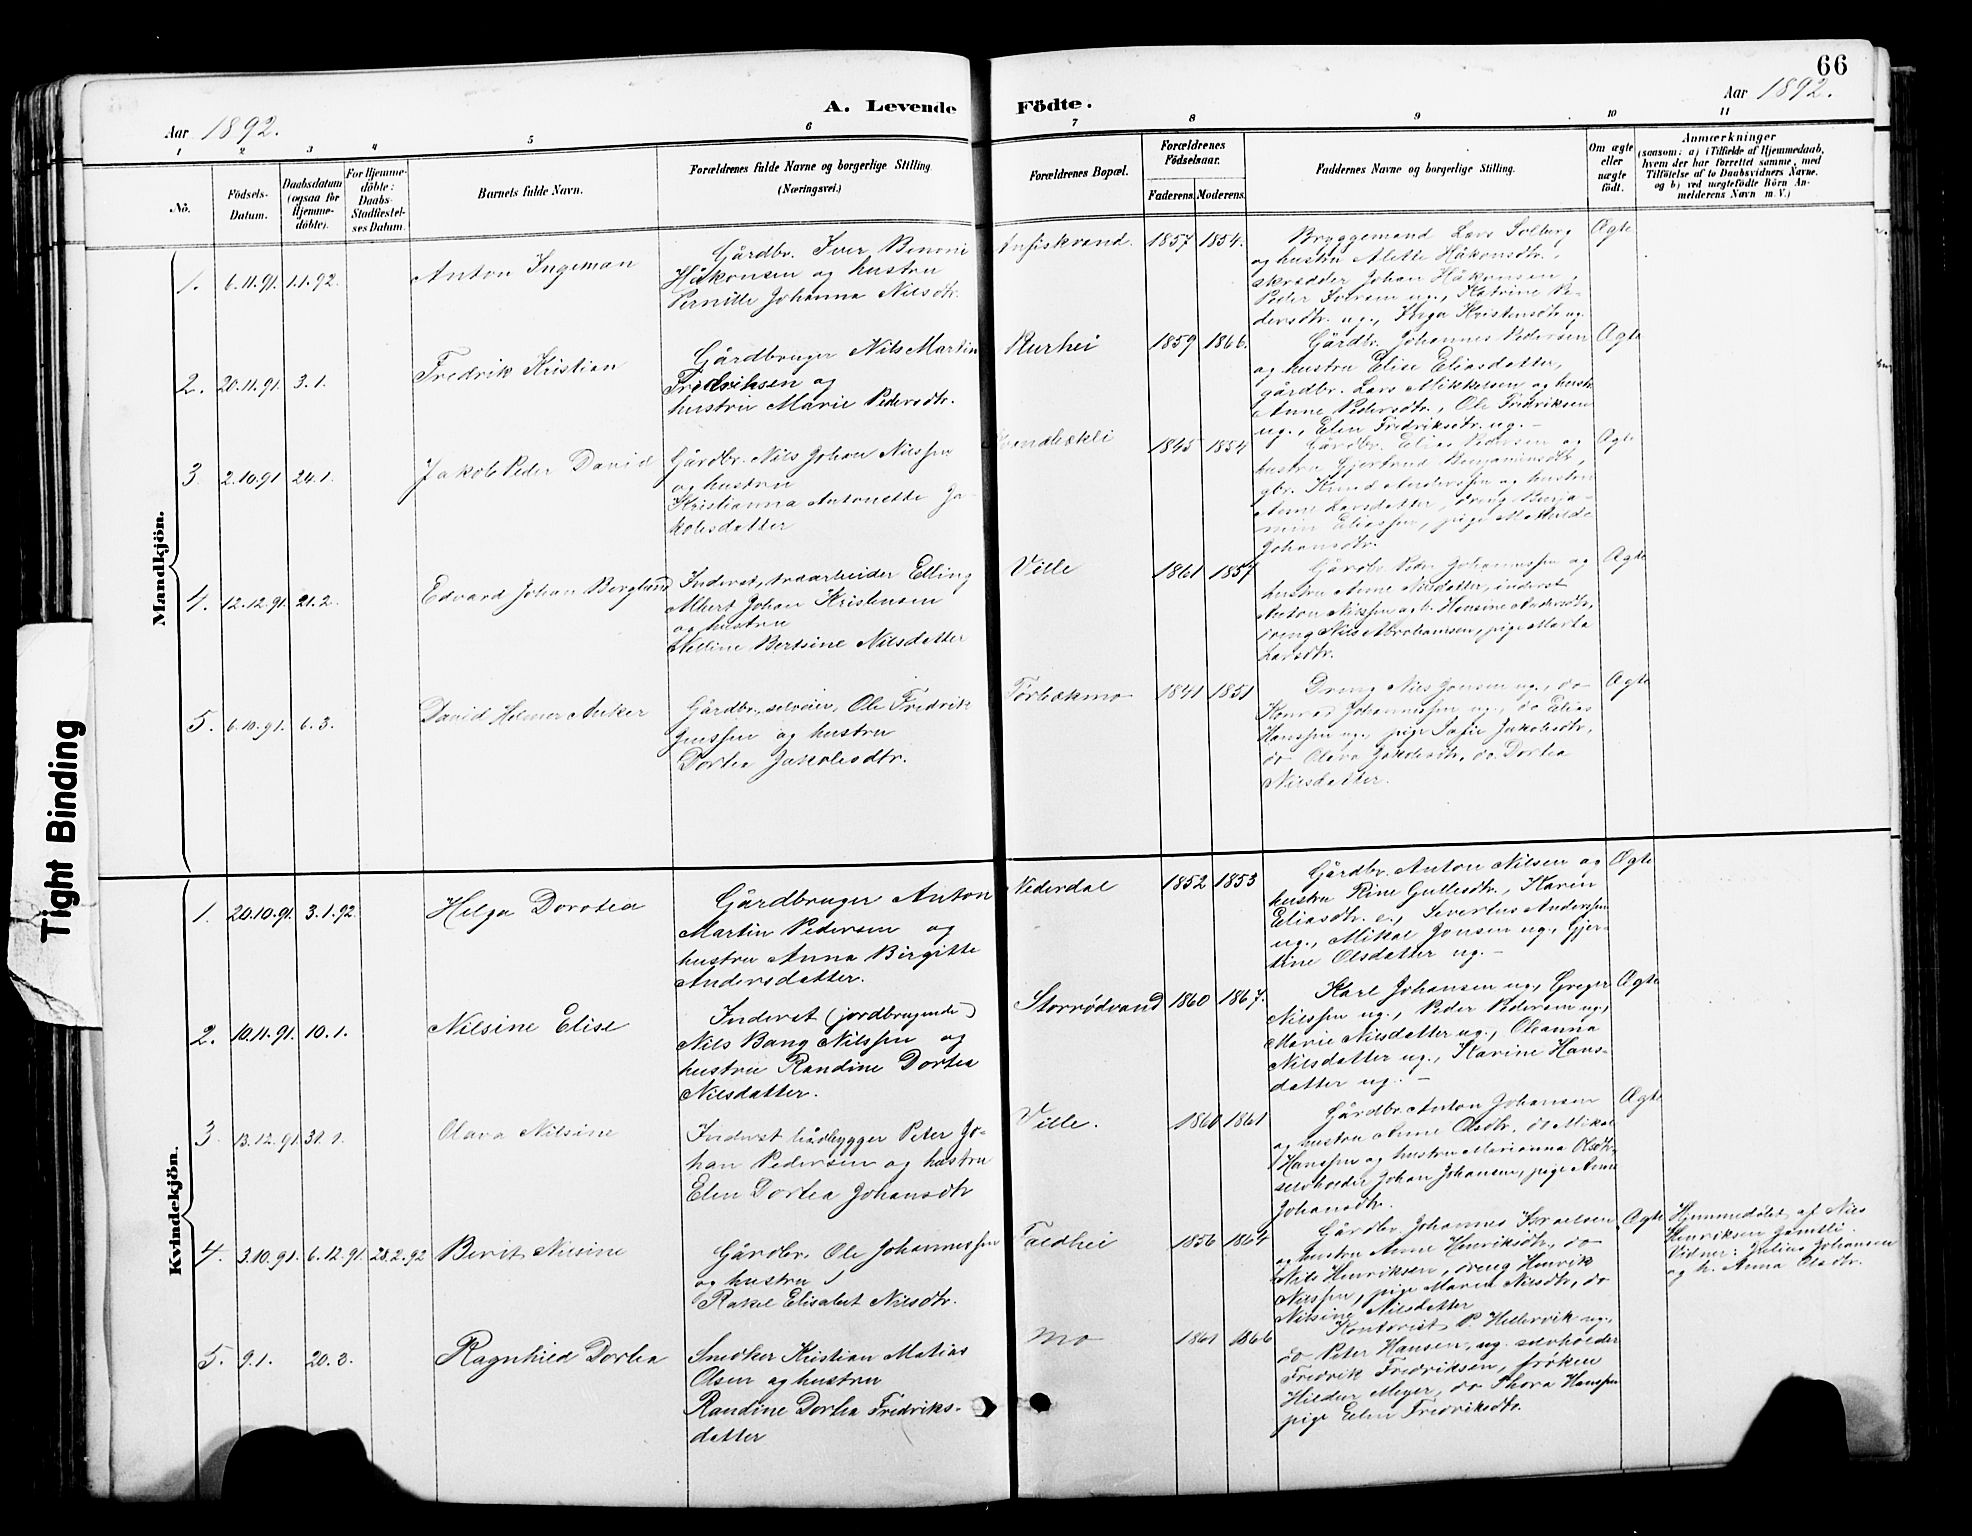 66
Aar 1892.
A. Levende Födte.
Aar 1892.
1 2 3 4 5 6 7 8 9 10 11
No.
Födsels-
Datum.
Daabsdatum
(ogsaa for
Hjemme-
döbte).
For Hjemme-
döbte:
Daabs-
Stadfæstel-
ses Datum.
Barnets fulde Navn.
Forældrenes fulde Navne og borgerlige Stilling
(Næringsvei.)
Forældrenes Bopæl.
Forældrenes
Födselsaar.
Faderens. Moderens.
Faddernes Navne og borgerlige Stilling.
Om ægte
eller
uægte
födt.
Anmærkninger
(saasom: a) i Tilfælde af Hjemmedaab,
hvem der har forrettet samme, med
Tilföielse af to Daabsvidners Navne,
og b) ved uægtefödte Börn An-
melderens Navn m. V.)
Mandkjön.
1. 6.11.91. 1.1.92.
Anton Ingeman
Gårdbr. Iver Benoni
Håkonsen og hustru
Pernille Johanna Nilsdtr.
1857 1854.
Bryggemand Lars Solberg
og hustru Alette Håkonsdtr.,
skrædder Johan Håkonsen,
Peder Iversen ug., Katrine Pe-
dersdtr. ug., Inga Kristensdtr ug.
Ægte
2. 20.11.91. 3.1.
Fredrik Kristian
Gårdbruger Nils Martin
Fredriksen og
hustru Marie Pedersdtr.
Rurhei
1859 1866.
Gårdbr. Johannes Pedersen
og hustru Elise Eliasdatter,
gårdbr. Lars Mikkelsen og hustr.
Anne Pedersdtr., Ole Fredriksen
ug., Elen Fredriksdtr. ug. –
Ægte
3. 2.10.91 24.1.
Jakob Peder David
Gårdbr. Nils Johan Nilssen
og hustru
Kristianna Antonette Ja-
kobsdatter
1845 1854
Gårdbr. Elias Pedersen og
hustru Gjertrud Benjaminsdtr.,
gbr. Knud Anderssen og hustru
Anne Larsdatter, dreng Benja-
min Eliassen, pige Mathilde
Johansdtr.
Ægte
4. 12.12.91. 21.2.
Edvard Johan Berglund
Inderst, træarbeider Elling
Albert Johan Kristensen
og hustru
Nelline Bertsine Nilsdatter
Ville
1861 1857
Gårdbr. Peder Johannessen og
hustru Anne Nilsdatter, inderst
Anton Nilssen og h. Hansine Andersdtr.,
dreng Nils Abrahamsen, pige Marta
Larsdtr.
Ægte
5. 6.10.91. 6.3.
David Helmer Anker
Gårdbr., selveier, Ole Fredrik
Jenssen og hustru
Dortea Jakobsdtr.
Tørbækmo
1841 1851
Dreng Nils Jonsen ug., do
Konrad Johannessen ug., do Elias
Hanssen ug., pige Sofie Jakobsdtr.,
do Olava Jakobsdtr., do. Dortea
Nilsdatter.
Ægte
Kvindekjön.
1. 20.10.91. 3.1.92.
Helga Dorotea
Gårdbruger Anton
Martin Pedersen og
hustru Anna Birgitte
Andersdatter.
Nederdal
1852 1853
Gårdbr. Anton Nilsen og
hustru Rine Gullesdtr., Karen
Eliasdtr. e., Severtus Anderssen
ug., Mikal Jonsen ug., Gjer-
tine Olsdatter ug. –
Ægte
2. 10.11.91. 10.1.
Nilsine Elise
Inderst (jordbrugende)
Nils Bang Nilssen og
hustru Randine Dortea
Nilsdatter.
Storrødvand
1860 1867.
Karl Johansen ug., Greger
Nilssen ug., Peder Pedersen ug.,
Marie Nilsdatter ug., Oleanna
Nilsdatter ug., Karine Hans-
datter ug. –
Ægte
3. 13.12.91. 31.1.
Olava Nilsine
Inderst bådbygger Peter Jo-
han Pedersen og hustru
Elen Dortea Johansdtr
Ville.
1860 1861
Gårdbr. Anton Johansen
og hustru Anne Olsdtr. do Mikal
Hanssen og hustru Marianna Olsdtr.
selvfoeder Johan Johansen, pige Anne
Johansdtr.
Ægte
4. 3.10.91. 6.12.91. 28.2.92
Berit Nilsine
Gårdbr. Ole Johannessen
og hustru
Rakel Elisabet Nilsdtr.
1856 1864
Gårdbr. Johannes Israelsen
og hustru Anne Henriksdtr., do
Nils Henriksen, dreng Henrik
Nilssen, pige Maren Nilsdtr, do
Nilsine Nilsdatter
Ægte
Hjemmedøbt af Nils
Henriksen Jamtli.
Vidner: Julius Johansen
og h. Anna Olsdtr.
5. 9.1. 20.3.
Ragnhild Dortea
Snedker Kristian Matias
Olsen og hustru
Randine Dortea Fredriks-
datter
Mo
1861 1866
Kontorist P. Hellervik ug.,
do Peter Hansen, ug. selvholder
Fredrik Fredriksen, frøken
Hildur Meyer, do Thora Hanssen
pige Elen Fredriksdtr.
Tight Binding